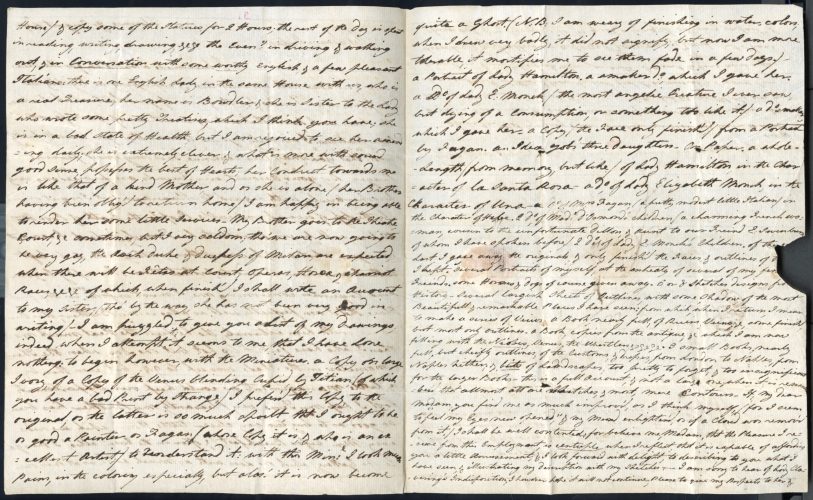 House/ & copy some of the Statues for 2 Hours, the rest of the day is spent
in reading, writing, drawing &c &c the Even.g in driving & walking
out, & in Conversation with some worthy English & a few pleasant
Italians, there is one English Lady in the same House with us, who is
a real Treasure, her name is Bowdler, & she is Sister to the Lady
who wrote some pretty which I think you have, she
is in a bad State of Health, but I am rejoiced to see her
daily, she is extremely clever, & what is more with sound
good sense, possesses the best of Hearts, her conduct towards me
is like that of a kind Mother and as she is alone/ her Brother
having been oblig'd to return home/ I am happy in being able
to render her some little Services. My Brother goes to the Theatre
Court &c sometimes, but I very seldom, tho' we are now going to
be very gay, the Arch Duke & Duchess of Milan are expected
when there will be Fetes at Court, Operas, Horse & Chariot
Races &c &c of which when finish'd I shall write an Account
to my Sister, tho' by the way she has not been very good in
writing. I am puzzled to give you a list of my Drawings
indeed when I attempt it seems to me that I have done
nothing, to begin however with the Miniatures, a Copy on large
Ivory of a Copy of the Venus blinding Cupid by Titian, of which
you have a bad Print by Strange/ I prefer'd the Copy to the
original, as the latter is so much spoilt that I ought to be
as good a Painter as Fagan/ whose Copy it is, & who is an
Artist/ to understand it with this Min.e I took much
Pains, in the coloring especially, but alas! it is now become
quite a Ghost/ N.B. I am weary of finishing in water colors
when I drew very badly, it did not signify, but now I am more
tolerable it mortifies me to see them fade in a few days/
a Portrait of Lady Hamilton, a smaller D.o which I gave her,
a D.o of Lady E. Monck/ the most angelic Creature I ever saw
but dying of a Consumption, or something too like it/ a D.o smaller
which I gave her, a Copy/ the Face only finish'd/ from a Portrait
by Fagan. an Idea of daughters. On Paper, a whole
Length, from memory but like/ of Lady Hamilton in the Char
acter of La Santa Rosa. a D.o of Lady Elizabeth Monck in the
Character of Una. a D.o of M.rs Fagan/ a pretty modest little Italian/ in
the Character of Hebe. 2 D.o of Mad. children/ a charming French wo
man, cousin to the unfortunate Dillon, & aunt to our Friend
of whom I have spoken before/ 2 D.os of Lady E. Monck's Children, of the
last I gave away the originals & only finish'd the Faces & outlines of those
I kept, several Portraits of myself at the entreaty of several of my
Friends, some Horses & Dogs of course given away. 5 or 6 Sketches designs for
History. Several large Sheets of Outlines with some Shadow of the most
Beautiful & remarkable Places I have seen, from which when I return I mean
to make a series of Views. a Book in full of Recent Views, some finish'd
but most only outlines, a Book, copies from the antique &c which I am now
filling with the Niobes, Venus, the Wrestlers &c &c 2 small Books, nearly
full, but chiefly outlines of the Customs & Dresses from London to Naples, from
Naples hither, & bits of Landscapes, too pretty to forget, & too insignificant
for the larger Books. this is a full account, & not a large one, when it is remem
ber'd that almost all are sketches & most mere Contours. If, my dear
Madam, you find me as improv'd, as I think myself, for I seem
to feel my Eyes now opened & my mind enlighten'd as if a Cloud was remov'd
from it, I shall be well contented, for believe me Madam, that the Pleasure I re
ceive from this Employment is centuple, when I reflect that it is capable of affording
you a little Amusement, & I look forward with delight to describing to you what I
have seen & illustrating my description with my Sketches. I am sorry to hear of
Indisposition, I however hope it will not continue. Please to give my Respects to her &